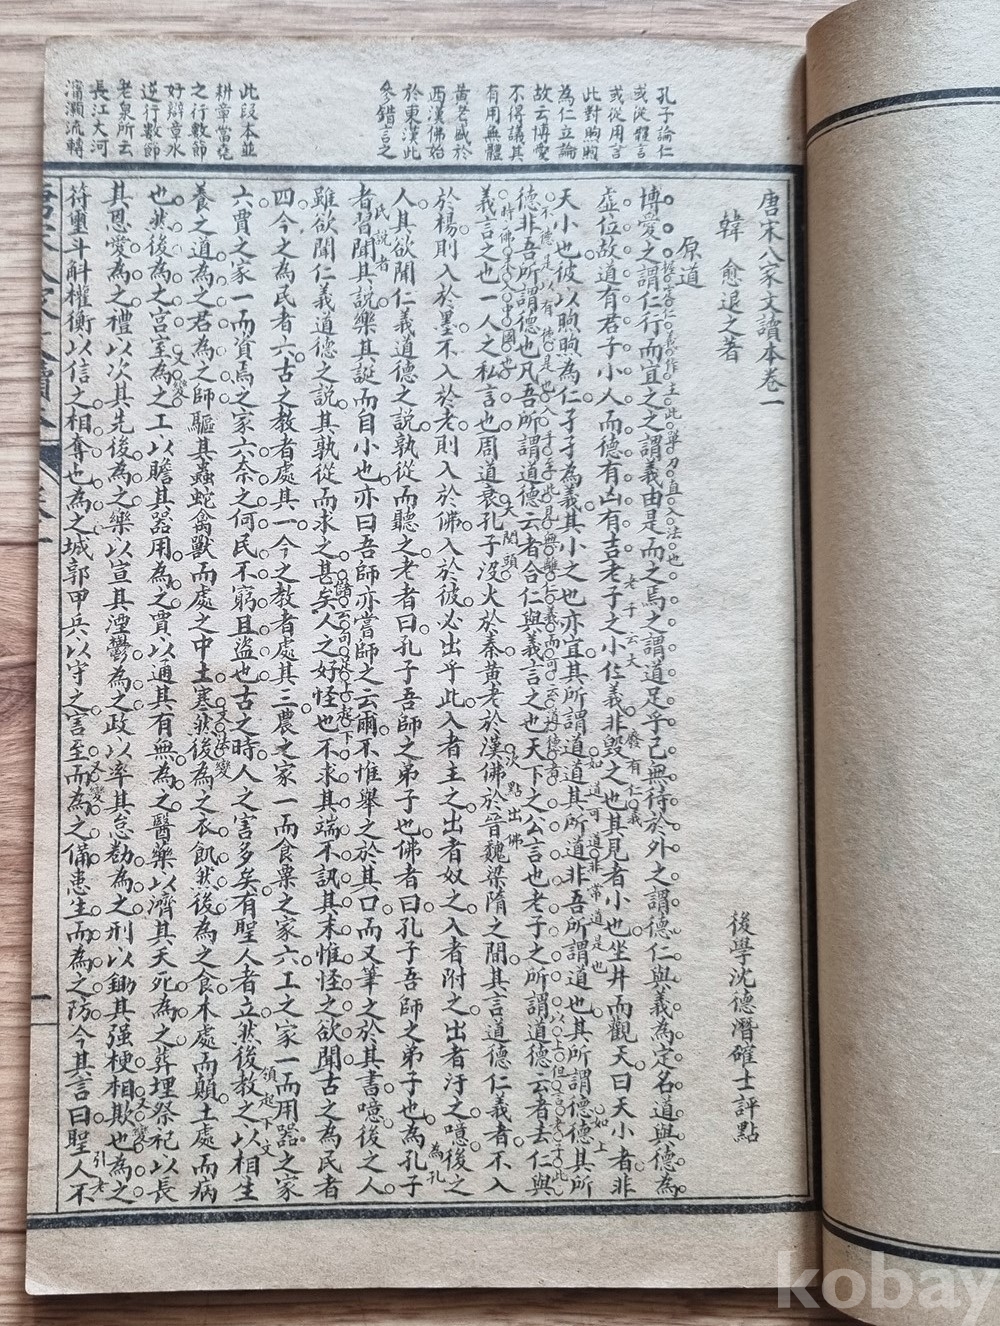 孔子論仁
或從體言
或從用言
此對煦煦
為仁立論
故云博愛
不得議其
有用無體
黃老盛於
西漢佛始
於東漢此
參錯言之
此段本並
耕章當堯
之行數節
好辯章水
逆行數節
老泉所云
長江大河
渾灝流轉
唐宋八家文讀本卷一
韓愈退之著
後學沈德潛確士評點
原道
博愛之謂仁行而宜之之謂義由是而之焉之謂道足乎己無待於外之謂德仁與義為定名道與德為
虛位故道有君子小人而德有凶有吉老子之小仁義非毀之也其見者小也坐井而觀天曰天小者非
老子云大
廢有仁義
天小也彼以煦煦為仁孑孑為義其小之也亦宜其所謂道道其所道非吾所謂道也其所謂德德其所
如道可道非常道是也
如上
德非吾所謂德也凡吾所謂道德云者合仁與義言之也天下之公言也老子之所謂道德云者去仁與
義言之也一人之私言也周道衰孔子沒火於秦黃老於漢佛於晉魏梁隋之間其言道德仁義者不入
時佛未入中國也
大關頭
次點出佛
於楊則入於墨不入於老則入於佛入於彼必出乎此入者主之出者奴之入者附之出者汙之噫後之
人其欲聞仁義道德之說孰從而聽之老者曰孔子吾師之弟子也佛者曰孔子吾師之弟子也為孔子
為孔
氏說者
者習聞其說樂其誕而自小也亦曰吾師亦嘗師之云爾不惟舉之於其口而又筆之於其書噫後之人
雖欲聞仁義道德之說其孰從而求之甚矣人之好怪也不求其端不訊其末惟怪之欲聞古之為民者
四今之為民者六古之教者處其一今之教者處其三農之家一而食粟之家六工之家一而用器之家
六賈之家一而資焉之家六奈之何民不窮且盜也古之時人之害多矣有聖人者立然後教之以相生
領起下文
養之道為之君為之師驅其蟲蛇禽獸而處之中土寒然後為之衣飢然後為之食木處而顛土處而病
文法變
也然後為之宮室為之工以贍其器用為之賈以通其有無為之醫藥以濟其夭死為之葬埋祭祀以長
又變
其恩愛為之禮以次其先後為之樂以宣其湮鬱為之政以率其怠勌為之刑以鋤其强梗相欺也為之
又變
符璽斗斛權衡以信之相奪也為之城郭甲兵以守之害至而為之備患生而為之防今其言曰聖人不
又變
引老
kobay